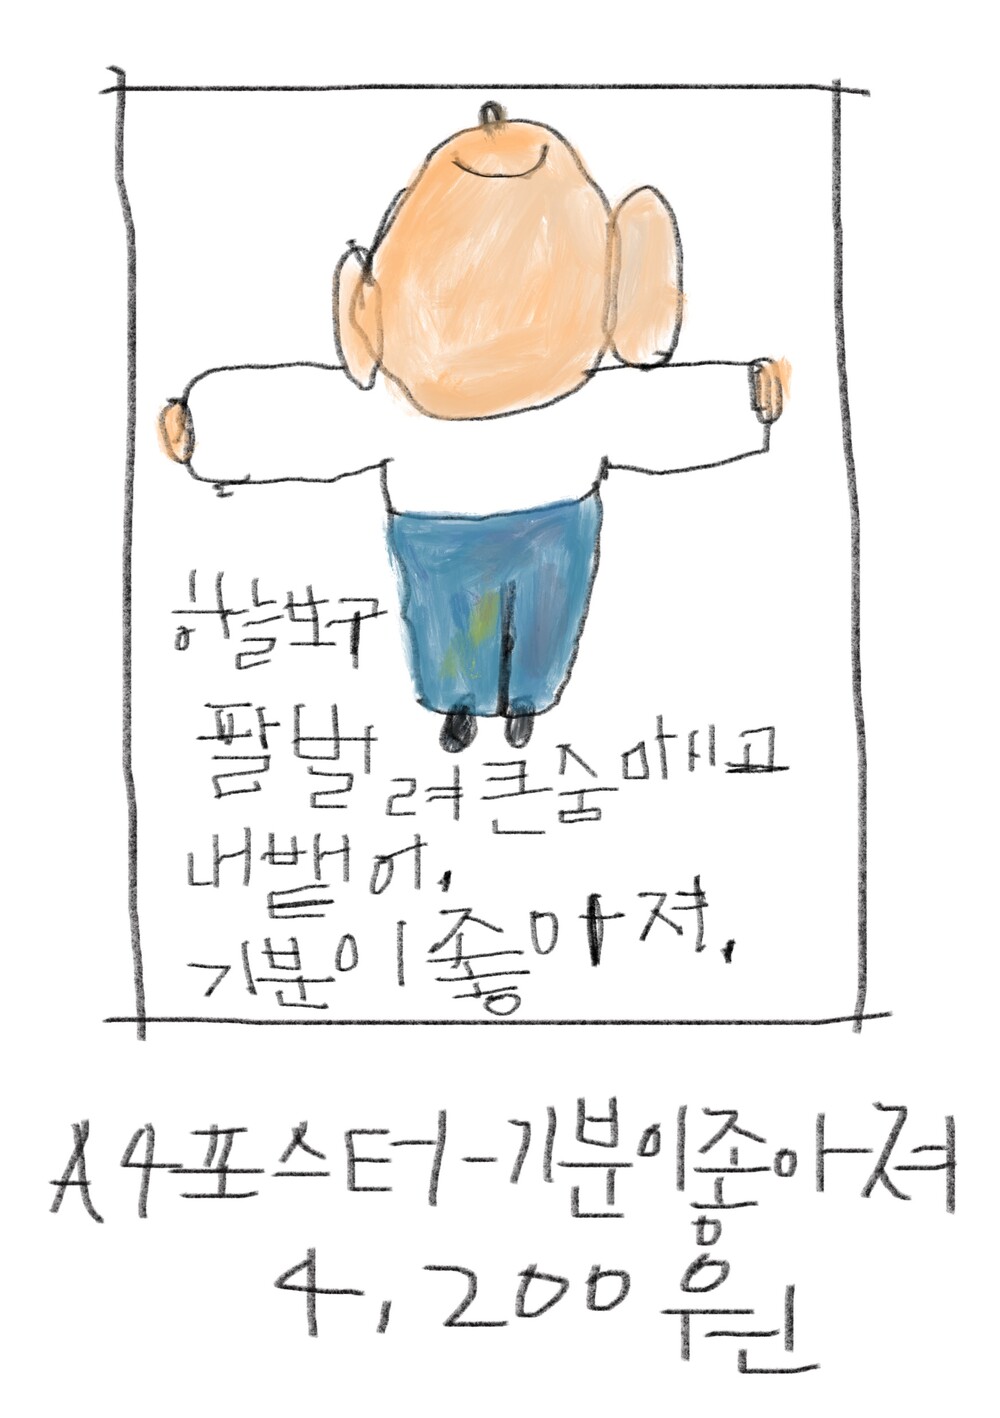 하늘보구
팔벌려큰숨마시고
내뱉어.
기분이좋아져.
A4포스터-기분이좋아져
4,200원